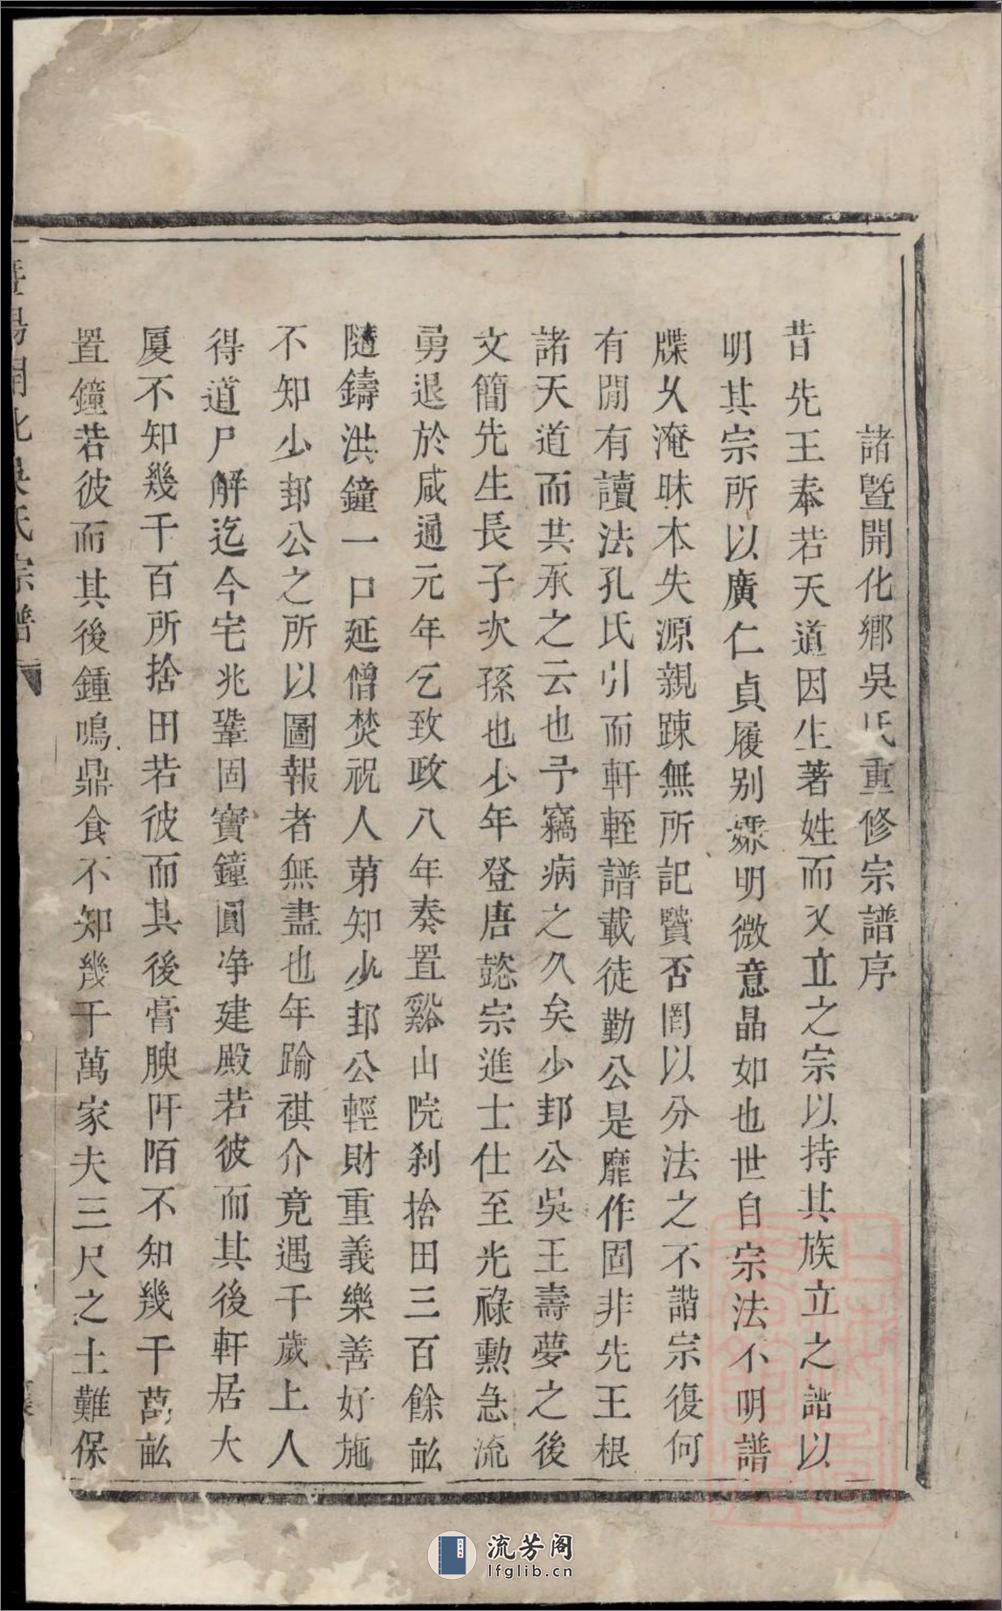 諸暨開化鄉吳氏重修宗譜序
昔先王奉若天道因生著姓而又立之宗以持其族立之譜以
明其宗所以廣仁貞履别嫌明微意晶如也世自宗法不明譜
牒乆淹昧本失源親踈無所記賢否罔以分法之不諧宗復何
有閒有讀法孔氏引而軒輊譜載徒勤公是靡作固非先王根
諸天道而共承之云也予竊病之久矣少邽公吳王壽夢之後
文簡先生長子次孫也少年登唐懿宗進士仕至光祿勲急流
勇退於咸通元年乞致政八年奏置谿山院刹捨田三百餘畝
隨鑄洪鐘一口延僧焚祝人苐知少邽公輕財重義樂善好施
不知少邽公之所以圖報者無盡也年踰祺介竟遇千歲上人
得道尸解迄今宅兆鞏固寶鐘圓净建殿若彼而其後軒居大
厦不知幾千百所捨田若彼而其後膏腴阡陌不知幾千萬畝
置鐘若彼而其後鍾鳴鼎食不知幾千萬家夫三尺之土難保
暨陽開化吳氏宗譜
流芳阁
lfglib.cn